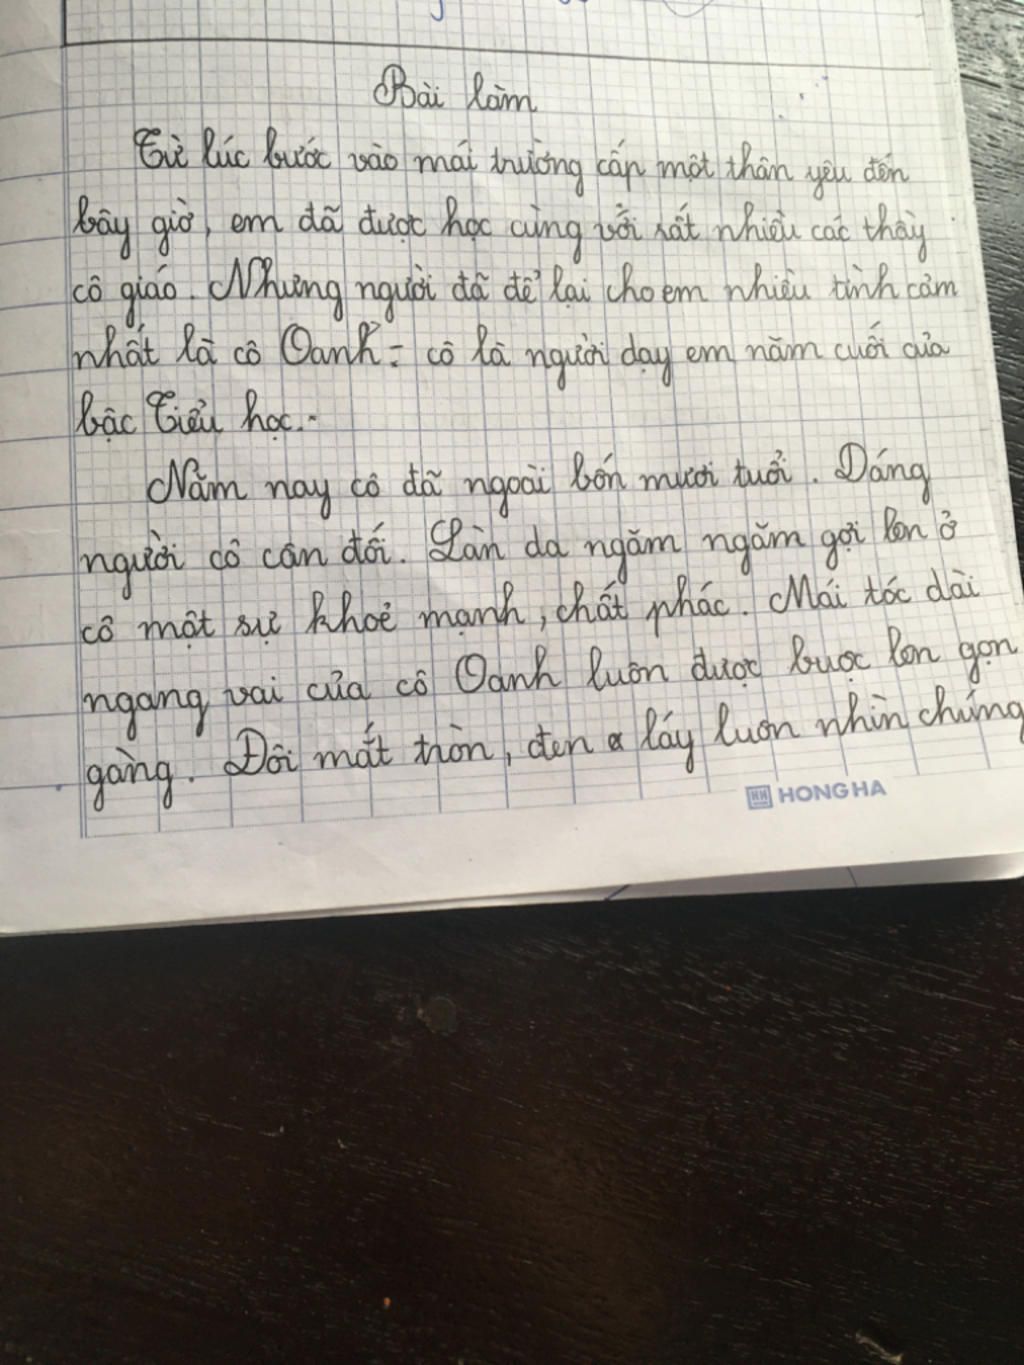 Bài làm
Từ lúc bước vào mái trường cấp một thân yêu đến
bây giờ, em đã được học cùng với rất nhiều các thầy
cô giáo. Nhưng người đã để lại cho em nhiều tình cảm
nhất là cô Oanh - cô là người dạy em năm cuối của
bậc Tiểu học.
Năm nay cô đã ngoài bốn mươi tuổi. Dáng
người cô cân đối. Làn da ngăm ngăm gợi lên ở
cô một sự khoẻ mạnh, chất phác. Mái tóc dài
ngang vai của cô Oanh luôn được buộc lên gọn
gàng. Đôi mắt tròn, đen láy luôn nhìn chúng
HH HONG HA